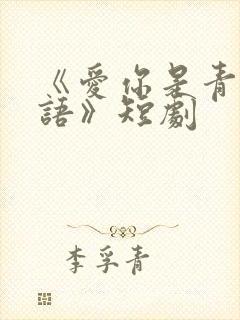 《愛你是青
語》短劇
李孚青